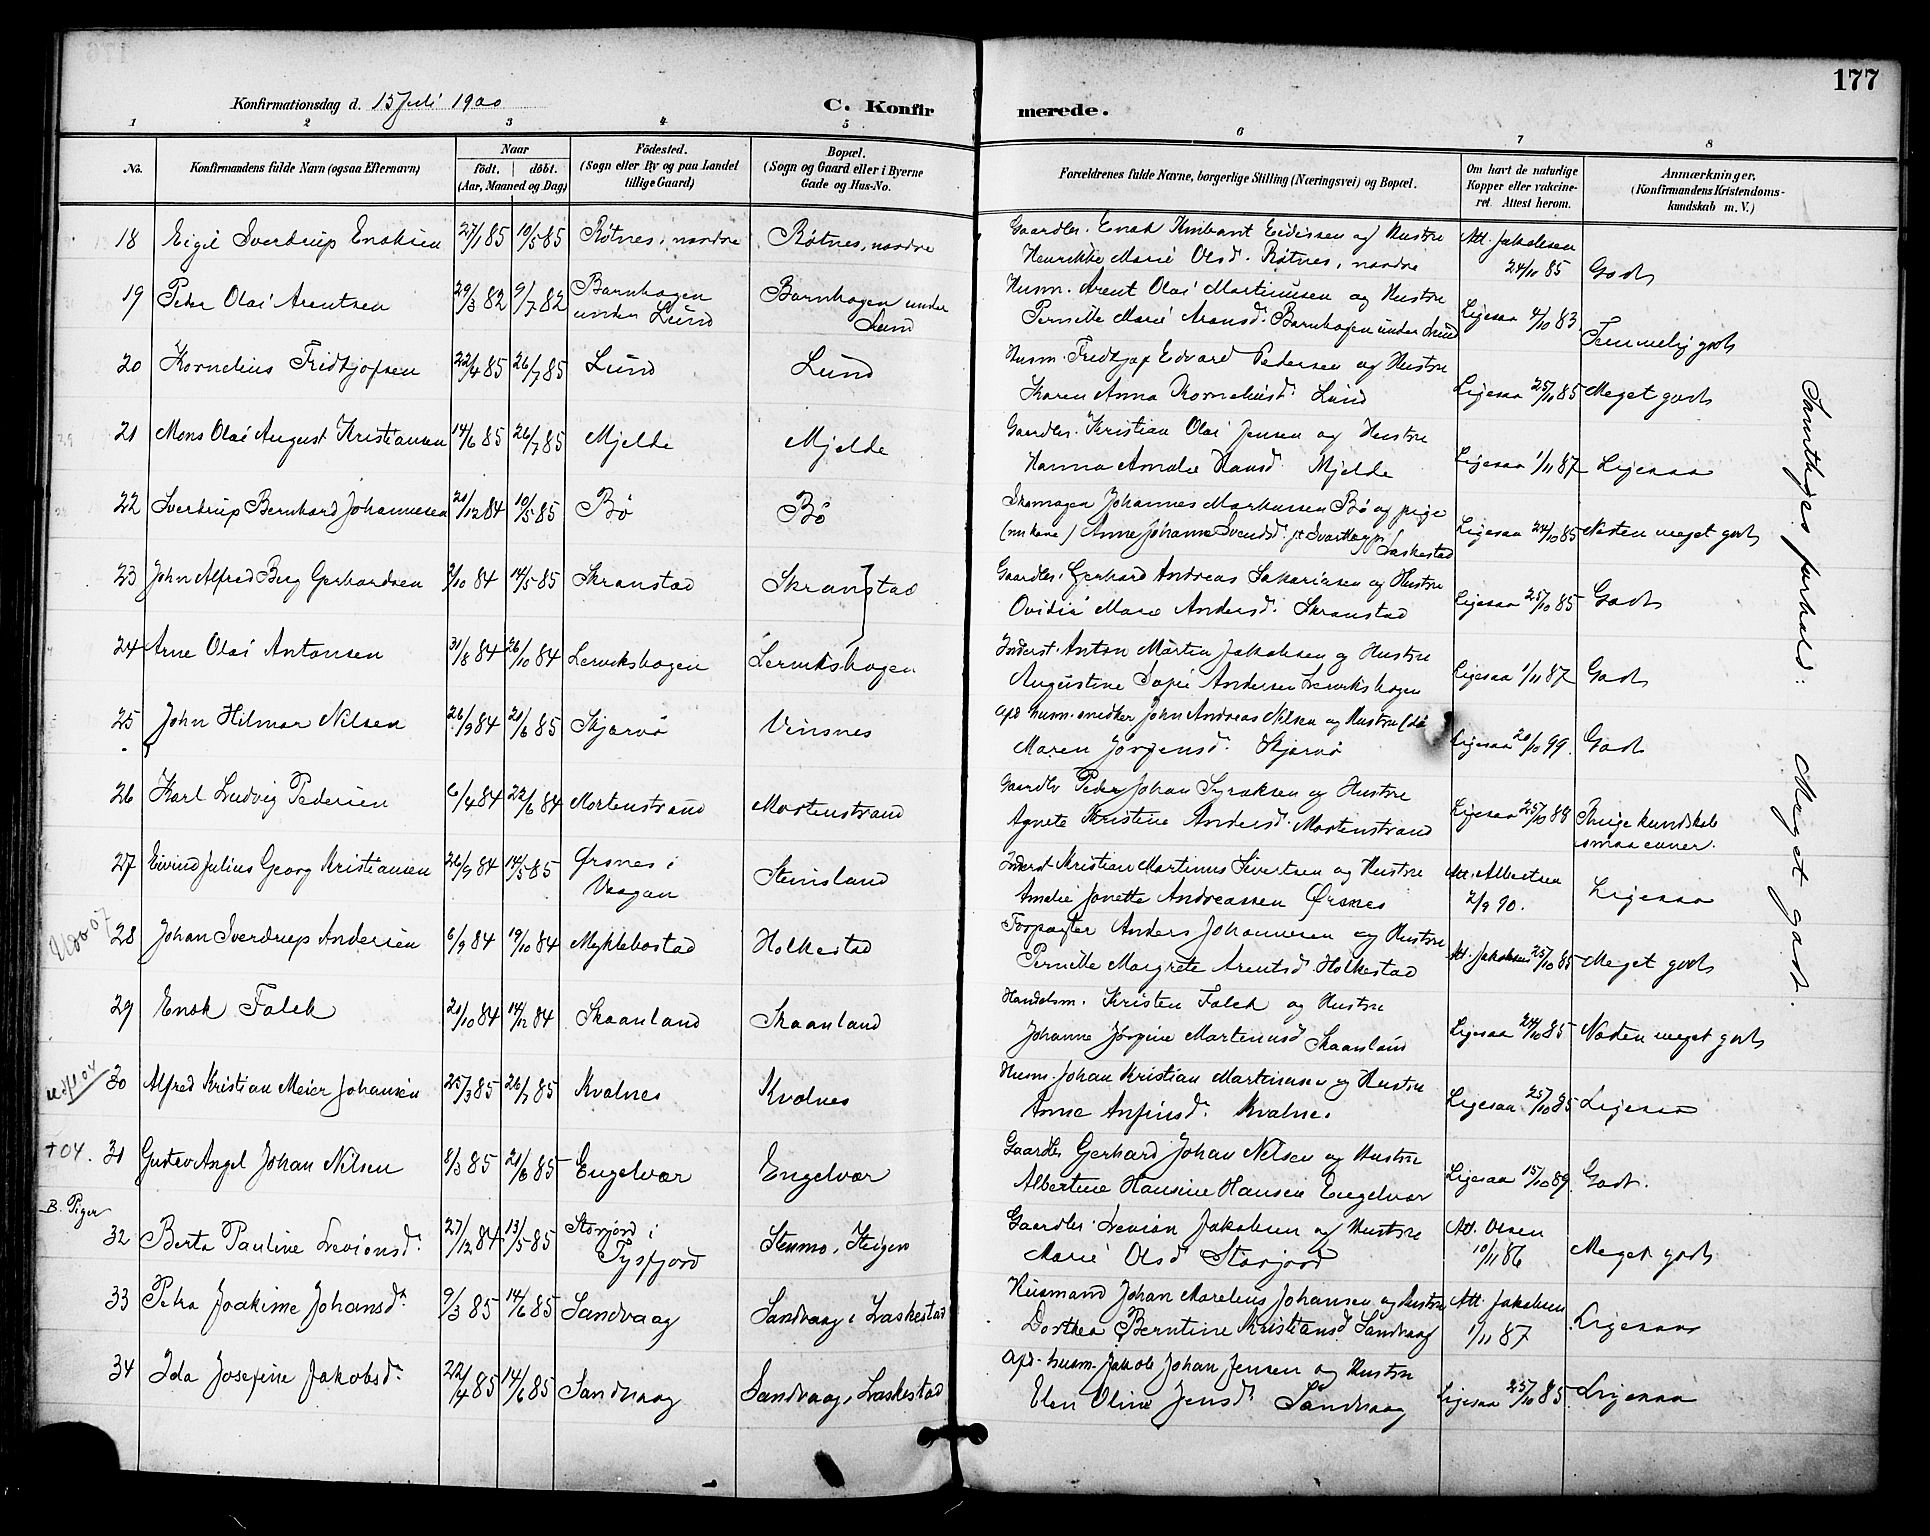 177
Konfirmationsdag d. 15 Juli 1900
C. Konfir
merede.
1 2 3 4 5 6 7 8
No.
Konfirmandens fulde Navn (ogsaa Efternavn)
Naar
født. døbt.
(Aar, Maaned og Dag)
Fødested.
(Sogn eller By og paa Landet
tillige Gaard)
Bopæl.
(Sogn og Gaard eller i Byerne
Gade og Hus-No.
Forældrenes fulde Navne, borgerlige Stilling (Næringsvei) og Bopæl.
Om havt de naturlige
Kopper eller vakcine-
ret. Attest herom.
Anmærkninger.
(Konfirmandens Kristendoms-
kundskab m. V.)
18 Eigil Sverdrup Enoksen 27/1 85 10/5 85 Røtnes, nordre Røtnes, nordre Gaardbr. Enok Kinbant Eidissen og Hustru Att. Jakobsen
Henrikke Marie Olsd. Røtnes, nordre 24/10 85 Godt
19 Peder Olai Arentsen 29/3 82 9/7 82 Barnhagen Barnhagen under Husm. Arent Olai Martinusen og Hustru
under Lund Lund Pernille Marie Aronsd. Barnhagen under Lund Ligesaa 4/10 83 Temmelig godt
20 Kornelius Fridtjofsen 22/4 85 26/7 85 Lund Lund Husm. Fredtjof Edvard Pedersen og Hustru
Karen Anna Korneliusd. Lund Ligesaa 25/10 85 Meget godt
21 Mons Olai August Kristiansen 14/6 85 26/7 85 Mjelde Mjelde Gaardbr. Kristian Olai Jensen og Hustru
Hanna Amalie Hansd. Mjelde Ligesaa 1/11 87 Ligesaa
22 Sverdrup Bernhard Johannesen 21/12 84 10/5 85 Bø Bø Skomager Johannes Markussen Bø og pige
(nu kone) Anne Johanna Svendsd. Svarthagen i Laskestad Ligesaa 24/10 85 Næsten meget godt
23 John Alfred Berg Gerhardsen 2/10 84 14/5 85 Skranstad Skranstad Gaardbr. Gerhard Andreas Sakariasen og Hustru
Ovidia Marie Andersd. Skranstad Ligesaa 25/10 85 Godt
24 Arne Olai Antonsen 31/8 84 26/10 84 Lervikshagen Lervikshagen Inderst. Anton Martin Jakobsen og Hustru
Augustine Sofie Andersen Lervikshagen Ligesaa 1/11 87 Godt
25 John Hilmar Nilsen 26/9 84 21/6 85 Skjærvø Vinsnes Afd. husm. snedker John Andreas Nilsen og Hustru
Maren Jørgensd. Skjærvø Ligesaa 20/10 99. Godt
26 Karl Ludvig Pedersen 6/4 84 22/6 84 Mortenstrand Mortenstrand Gaardbr Peder Johan Syraksen og Hustru
Agnete Kristine Andersd. Mortenstrand Ligesaa 25/10 88 Ringe kundskab
smaa evner.
27 Eivind Julius Georg Kristiansen 26/9 84 14/5 85 Ørsnes i Steinsland Inderst. Kristian Martinus Sivertsen og Hustru Att. Albertsen
Vaagan Amalie Jonette Andreassen Ørsnes 2/9 90. Ligesaa
28 Johan Sverdrup Andersen 6/9 84 19/10 84 Myklebostad Holkestad Forpagter Anders Johannesen og Hustru
Pernille Margrete Arentsd. Holkestad Att. Jakobsen 25/10 85 Meget godt
29 Enok Falck 21/10 84 14/12 84 Skaanland Skaanland Handelsm. Kristen Falck og Hustru
Johanne Jørgine Martinusd Skaanland Ligesaa 24/10 85 Næsten meget godt
30 Alfred Kristian Meier Johansen 25/3 85 26/7 85 Kvalnes Kvalnes Husm. Johan Kristian Martinusen og Hustru
Anne Anfinsd. Kvalnes Ligesaa 25/10 85 Ligesaa
+ 04. 31 Gustav Angel Johan Nilsen 8/3 85 21/6 85 Engelvær Engelvær Gaardbr Gerhard Johan Nilsen og Hustru
Albertine Hansine Hansen Engelvær Ligesaa 15/10 89. Godt.
B. Piger
32 Berta Pauline Levionsd. 27/12 84 13/5 85 Storjord i Stenmo, Steigen Gaardbr. Levion Jakobsen og Hustru Att. Olsen
Tysfjord Marie Olsd Storjord 10/11 86 Meget godt
33 Petra Joakime Johansd. 9/3 85 14/6 85 Sandvaag Sandvaag i Laskestad Husmand Johan Marelius Johansen og Hustru Att. Jakobsen
Dorthea Berntine Kristiansd Sandvaag 1/11 87 Ligesaa
34 Ida Josefine Jakobsd. 22/4 85 14/6 85 Sandvaag Sandvaag, Laskestad Afd. husm. Jakob Johan Jensen og Hustru
Elen Oline Jensd Sandvaag Ligesaa 25/10 85 Ligesaa
Samtliges forhold: Meget godt.